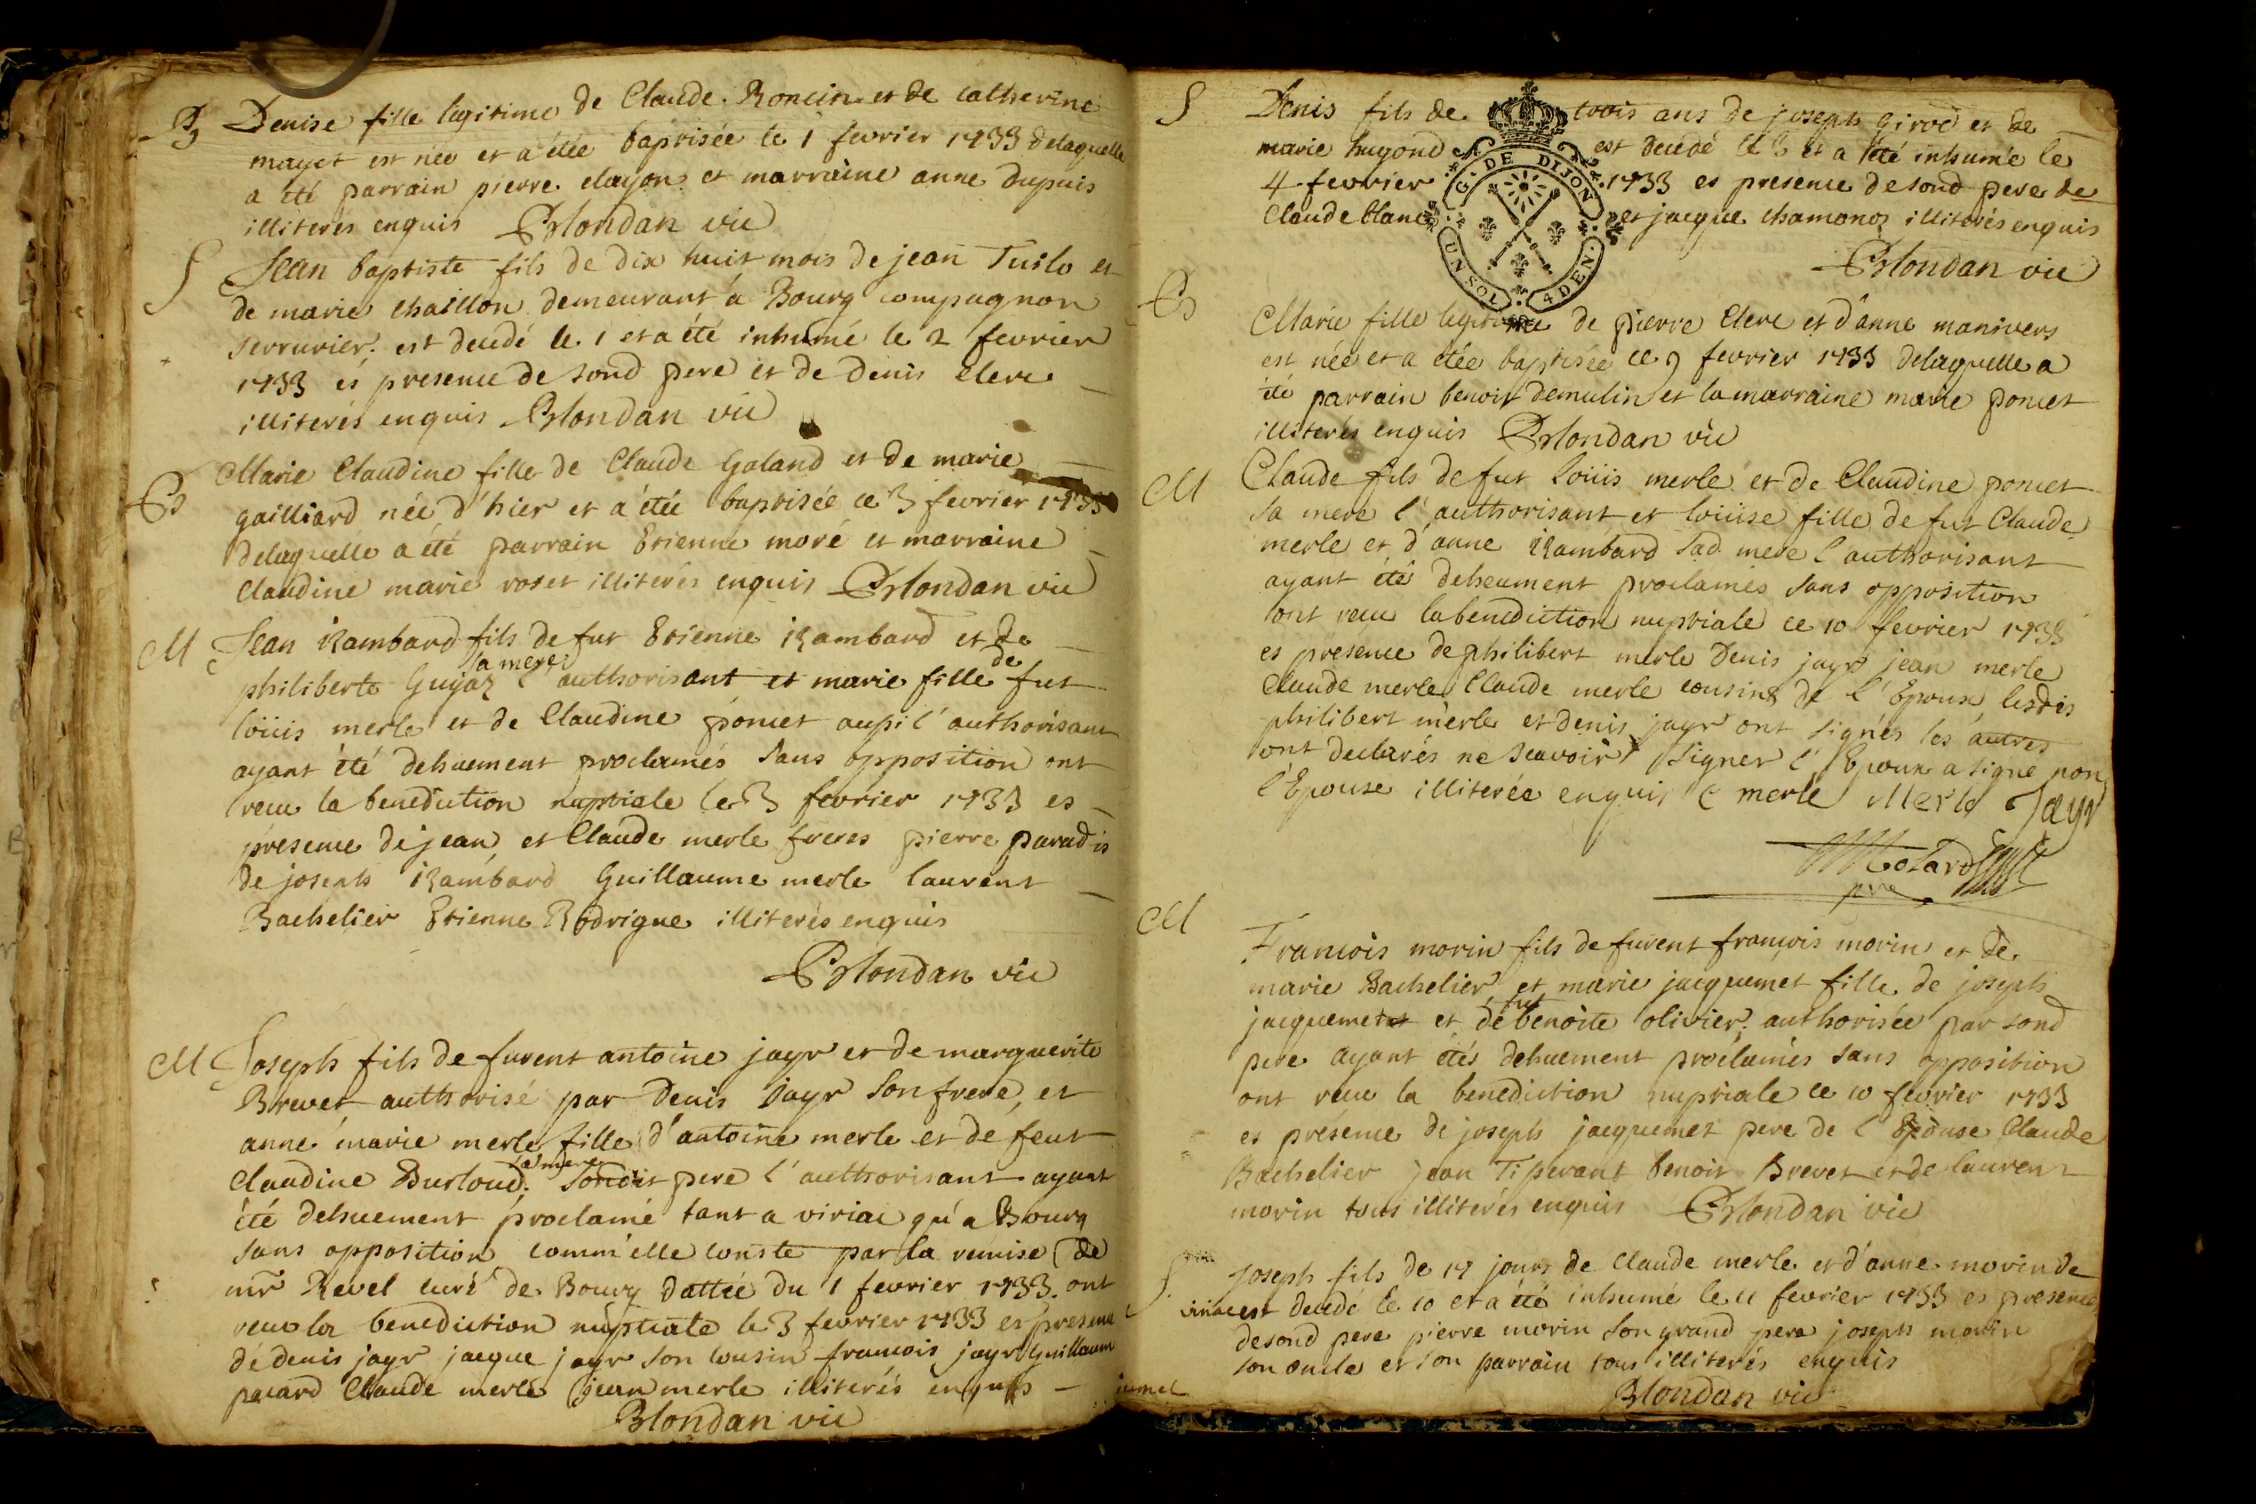 B Denise fille legitime de Claude Roncin et de catherine
mayet est née et a étée baptisée le 1 fevrier 1733 delaquelle
a été parrain pierre clayon et marraine anne dupuis
illiterés enquis Blondan vic
S Jean baptiste fils de dix huit mois de jean Tuilo et
de marie chaillon demeurant a Bourg compagnon
serrurier est decedé le 1 et a été inhumé le 2 fevrier
1733 es presence de sond pere et de Denis Clerc
illiterés enquis Blondan vic
B Marie Claudine fille de Claude Galand et de marie
gailliard née d'hier et a étée baptisée ce 3 fevrier 1733
delaquelle a été parrain Etienne moré et marraine
Claudine marie roset illiterés enquis Blondan vic
M Jean Rambard fils de fut Etienne Rambard et de
sa mere de
philiberte Guyaz l'authorisant et marie fille fut
loüis merle et de Claudine poncet aussi l'authorisant
ayant été dehuement proclamés sans opposition ont
receu la benediction nuptiale le 3 fevrier 1733 es
presence de jean et Claude merle freres pierre paradis
de joseph Rambard Guillaume merle laurent
Bachelier Etienne Rodrigue illiterés enquis
Blondan vic
M Joseph fils de furent antoine jayr et de marguerite
Brevet authorisé par Denis jayr son frere, et
anne marie merle fille d'antoine merle et de feut
sa mere
Claudine Burloud, sondit pere l'authorisant ayant
été dehuement proclamé tant a viriac qu'a Bourg
sans opposition comm'elle conste par la remise de
mr Revel curé de Bourg dattée du 1 fevrier 1733. ont
receu la benediction nuptiale le 3 fevrier 1733 es presence
de denis jayr jacque jayr son cousin francois jayr Guillaum
pacard Claude merle jean merle illiterés enquis
Blondan vic
S Denis fils de trois ans de joseph girod et de
marie hugond est decedé le 3 et a été inhumé le
4 fevrier 1733 es presence de sond pere de
Claude blanc et jacque chamonos illiterés enquis
G. DE DIJON
UN SOL 4 DEN.
Blondan vic
B Marie fille legitime de pierre Clerc et d'anne manivers
est née et a étée baptisée ce 9 fevrier 1733 delaquelle a
été parrain benoit demulin et la marraine marie poncet
illiterés enquis Blondan vic
M Claude fils de fut loüis merle et de Claudine poncet
sa mere l'authorisant et loüise fille de fut Claude
merle et d'anne Rambard sad mere l'authorisant
ayant été dehuement proclamés sans opposition
ont receu la benediction nuptiale ce 10 fevrier 1733
es presence de philibert merle Denis jayr jean merle
Claude merle Claude merle cousins de l'Epoux lesdis
philibert merle et denis jayr ont signés les autres
ont declarés ne scavoir signer l'Epoux a signé non
l'Epouse illiterée enquis C merle Merle Jayr
pre
M Francois morin fils de furent françois morin et de
marie Bachelier et marie jacquemet fille de joseph
fut
jacquemet et de benoite olivier authorisée par sond
pere ayant étés dehuement proclamés sans opposition
ont receu la benediction nuptiale ce 10 fevrier 1733
es presence de joseph jacquemet pere de l'Epouse Claude
Bachelier jean Tiperant benoit Brevet et de laurent
morin tous illiterés enquis Blondan vic
S Joseph fils de 17 jours de Claude merle et d'anne morin de
viriac est decedé le 10 et a été inhumé le 11 fevrier 1733 es presence
de sond pere pierre morin son grand pere joseph morin
son oncle et son parrain tous illiterés enquis
Blondan vic